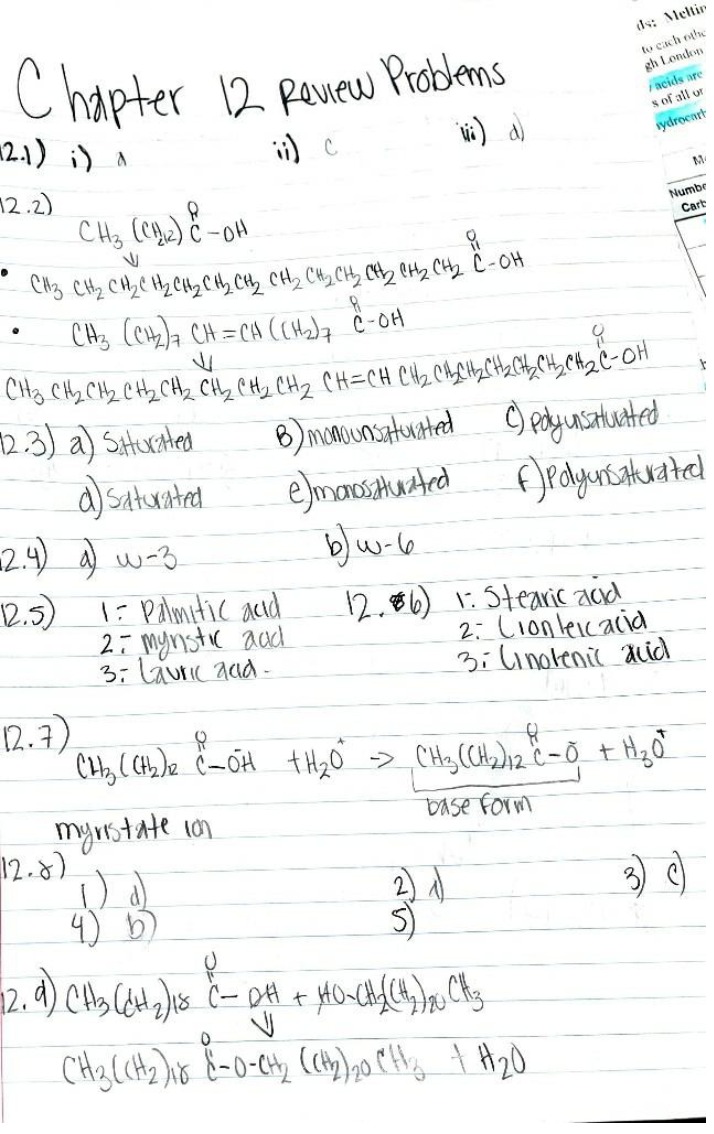 ds: Meltin
to each othe
gh London
acids are
s of all or
ydrocarb
Numbe
Carb
Chapter 12 Review Problems
12.1) i) a ii) c iii) d)
12.2)
O
CH3 (CH2)12 C-OH
O
• CH3 CH2 CH2 CH2 CH2 CH2 CH2 CH2 CH2 CH2 CH2 CH2 CH2 C-OH
O
• CH3 (CH2)7 CH=CH (CH2)7 C-OH
O
CH3 CH2 CH2 CH2 CH2 CH2 CH2 CH2 CH=CH CH2 CH2 CH2 CH2 CH2 CH2 CH2 C-OH
12.3) a) Saturated B) monounsaturated C) polyunsaturated
d) Saturated e) monosaturated f) Polyunsaturated
12.4) a) w-3 b) w-6
12.5) 1:- Palmitic acid 12.6) 1:- Stearic acid
2:- myristic acid 2:- Lionleic acid
3:- Lauric acid. 3:- Linolenic acid
12.7)
O O
CH3(CH2)12 C-OH + H2O → CH3(CH2)12 C-O + H3O+
base form
myristate ion
12.8)
1) d) 2) d) 3) c)
4) b) 5)
O
12.9) CH3(CH2)18 C-OH + HO-CH2(CH2)20 CH3
O
CH3(CH2)18 C-O-CH2 (CH2)20 CH3 + H2O